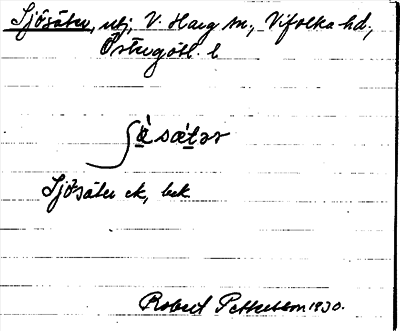 Sjösäter, utj, V. Harg sn, Vifolka hd,
Östergötl. l
Sjösäter ek, bek
Robert Pettersson 1930.